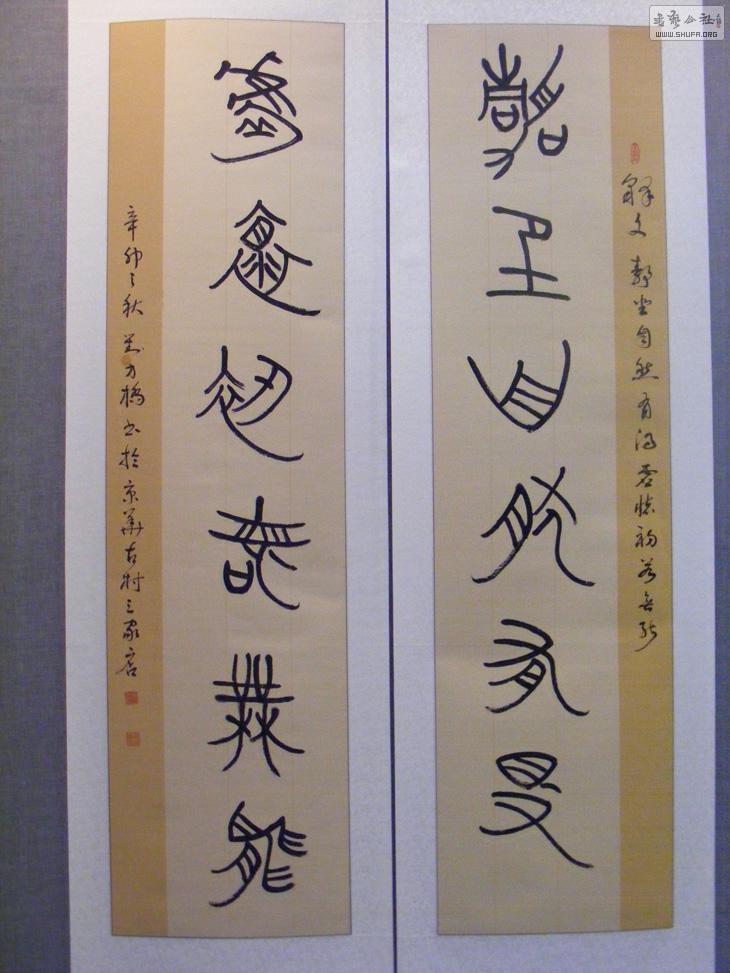 釋文 靜坐自然有得虛懷初若無能
靜坐自然有得
虛懷初若無能
辛卯之秋 力橋書於京華古村三家店
书艺公社
WWW.SHUFA.ORG